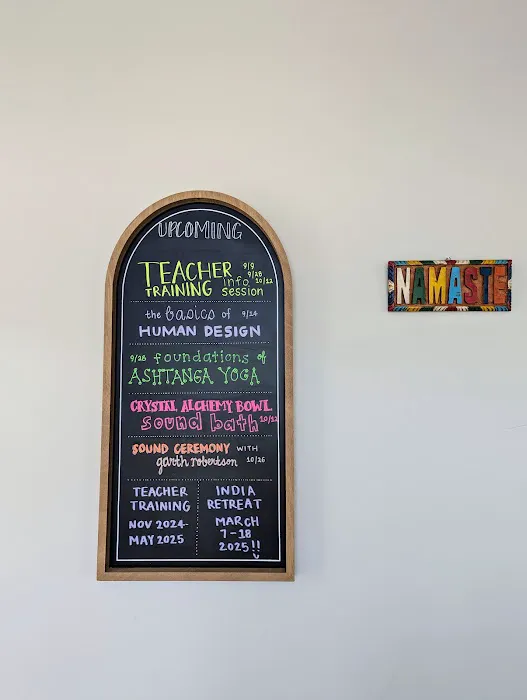 UPCOMING
TEACHER 9/9
TRAINING info 9/28 10/12
session
the basics of 9/24
HUMAN DESIGN
9/28 foundations of
ASHTANGA YOGA
CRYSTAL ALCHEMY BOWL
sound bath 10/12
SOUND CEREMONY WITH
garth robertson 10/26
TEACHER
TRAINING
NOV 2024-
MAY 2025
INDIA
RETREAT
MARCH
7-18
2025!!
NAMASTE